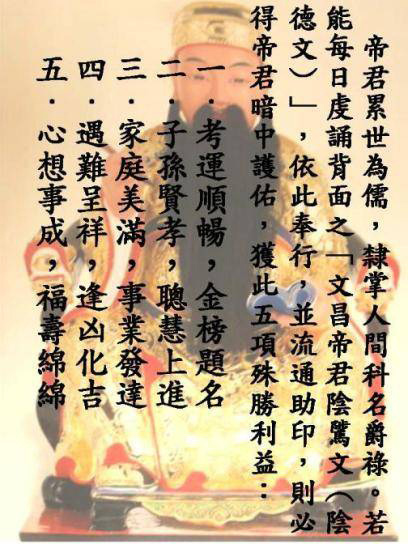 帝君累世為儒，隸掌人間科名爵祿。若
能每日虔誦背面之「文昌帝君陰騭文（陰
德文）」，依此奉行，並流通助印，則必
得帝君暗中護佑，獲此五項殊勝利益：
一．考運順暢，金榜題名
二．子孫賢孝，聰慧上進
三．家庭美滿，事業發達
四．遇難呈祥，逢凶化吉
五．心想事成，福壽綿綿